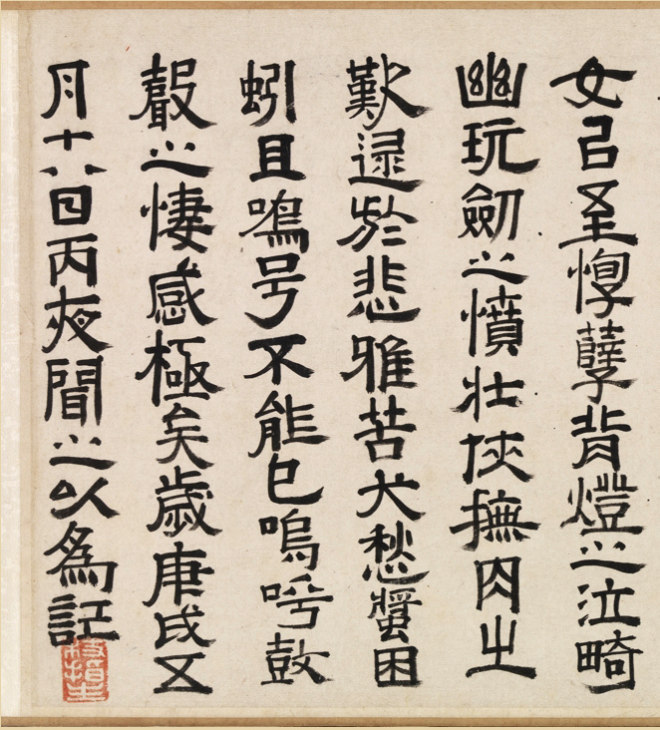 女㠯至惸孽背燈之泣畸
幽玩劒之憤壯俠撫肉㞢
歎逮於悲雅苦犬愁螿困
蚓且嗚号不能已嗚呼鼓
聲之悽感極矣歲庚戌五
月十八日丙夜聞之以爲記